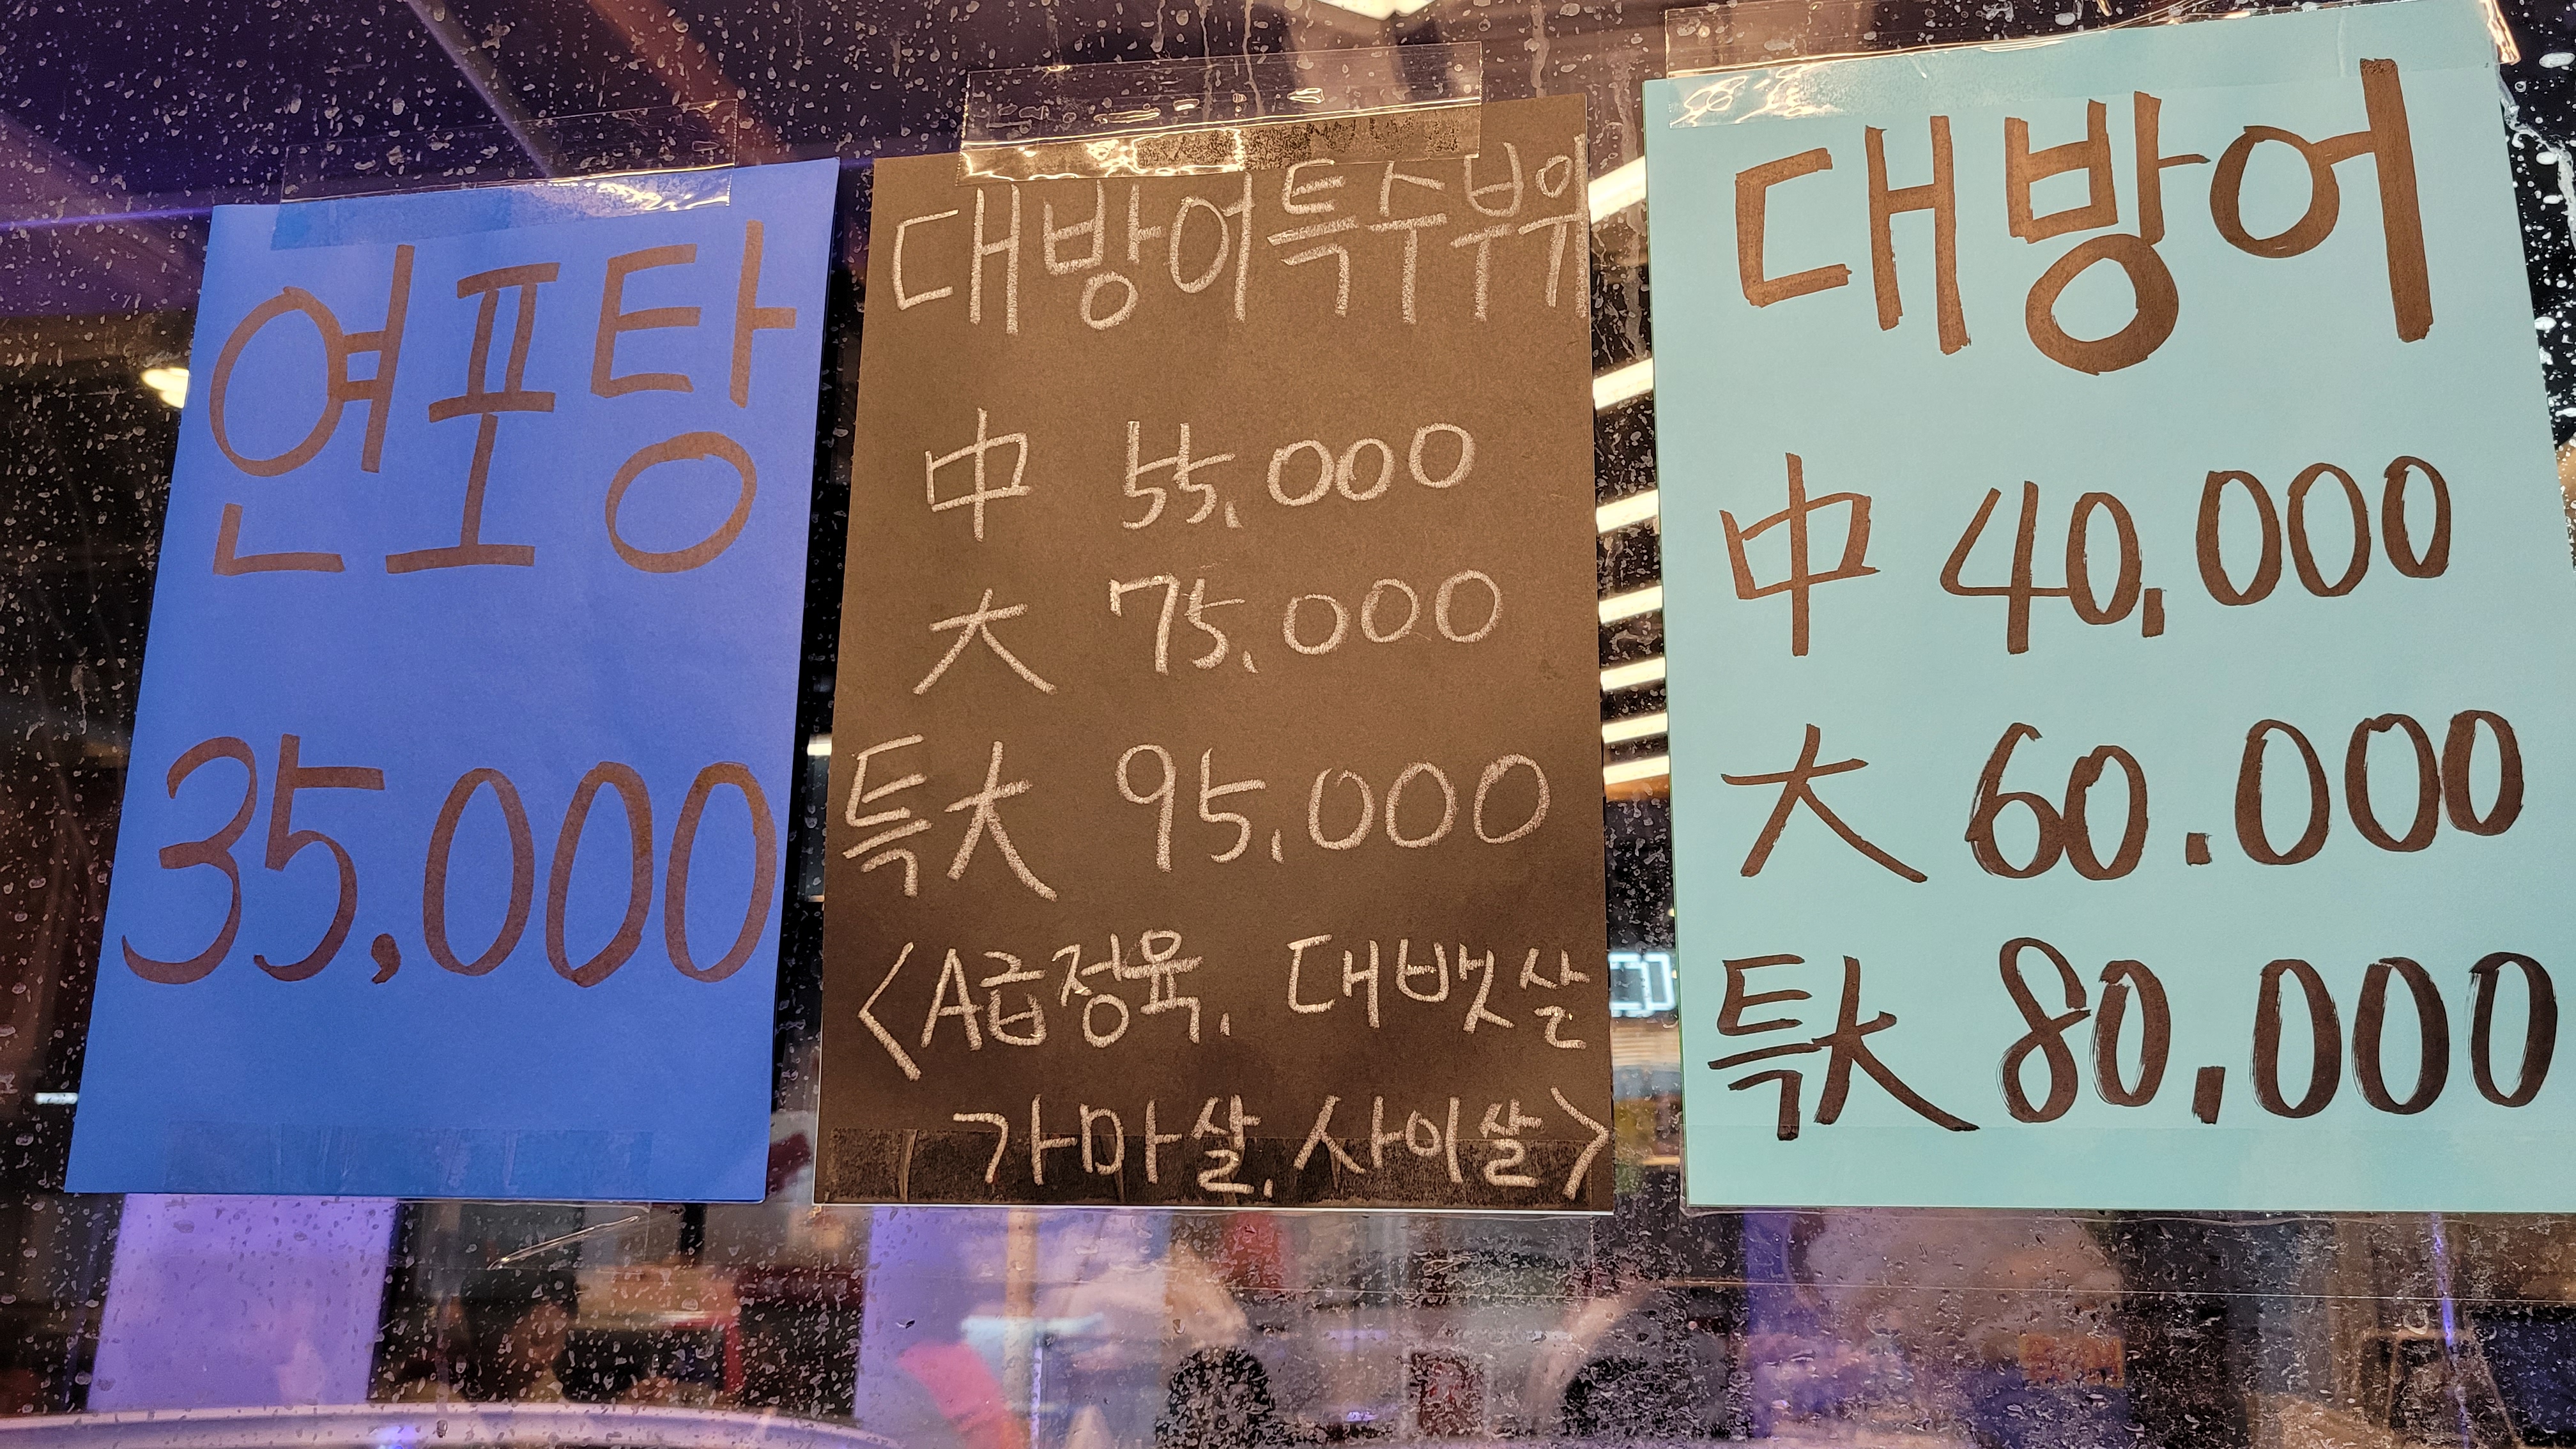 연포탕
35,000
대방어특수부위
中 55,000
大 75,000
특大 95,000
<A급정육, 대뱃살
가마살, 사이살>
대방어
中 40,000
大 60.000
특大 80,000